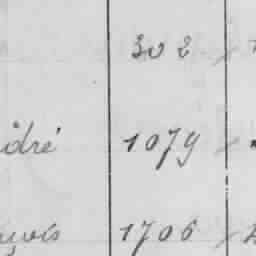 302
idré 1079
çois 1706